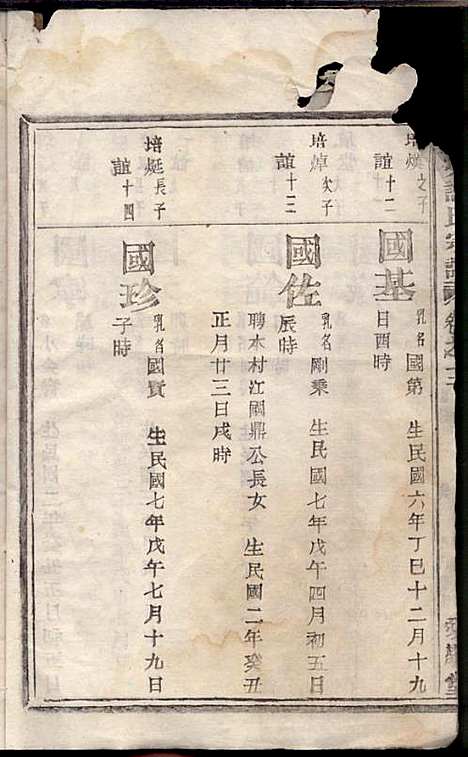 氏宗譜
卷之三
培
之子
誼十二
國基
乳名國第 生民國六年丁巳十二月十九
日酉時
培焯次子
誼十三
國佐
乳名剛秉 生民國七年戊午四月初五日
辰時
聘本村江國鼎公長女 生民國二年癸丑
正月廿三日戌時
培烶長子
誼十四
國珍
乳名國賢 生民國七年戊午七月十九日
子時
堂